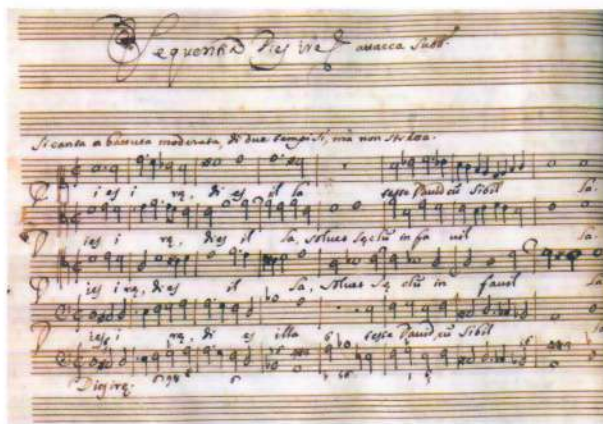 Sequentia Dies iræ attacca subo.
Si canta a battuta moderata, di due tempi si, mà non stretta.
i es i ræ, di es il la teste David cũ Sibil la.
ies i ræ, dies il la, Solvet sęclũ in fa vil la.
ies i ræ, di es il la, Solvet Sę clũ in favil la
ies i ræ, di es illa teste David cũ Sibil la
Dies iræ.